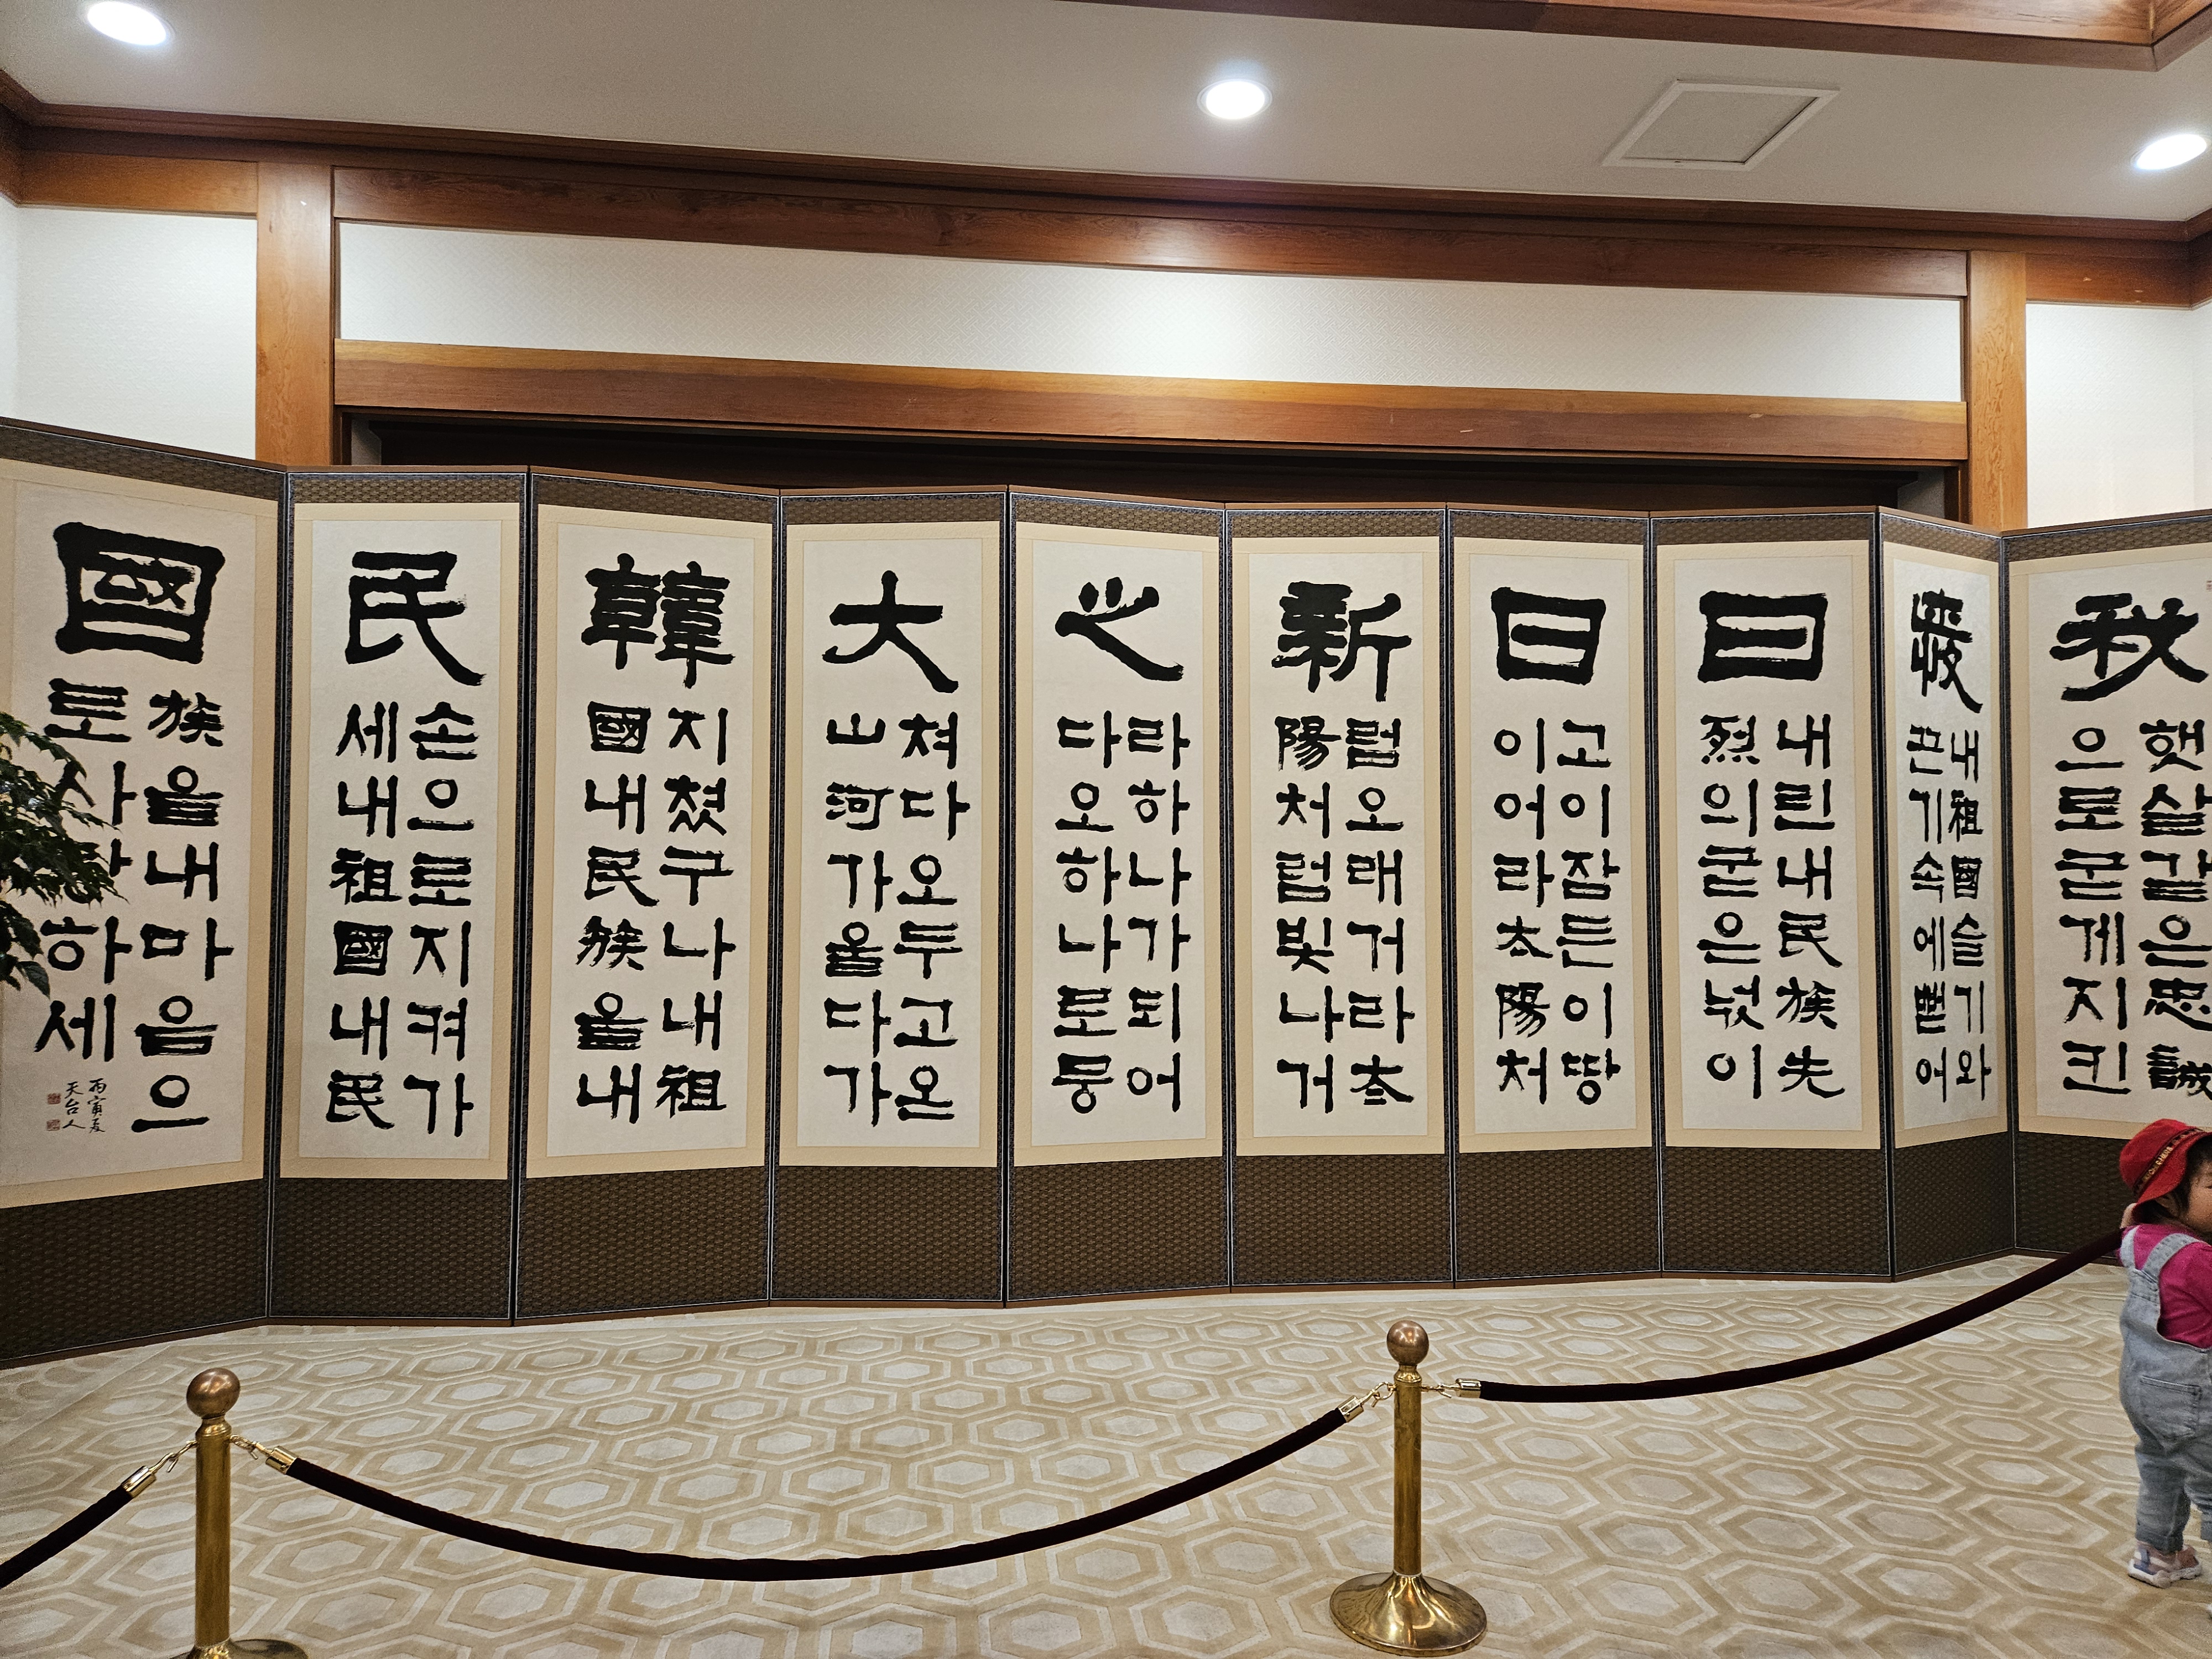 我
햇살같은忠誠
으로굳게지킨
愛
내祖國슬기와
끈기속에뻗어
日
내린내民族先
烈의굳은넋이
日
고이잠든이땅
이어라太陽처
新
럼오래거라太
陽처럼빛나거
之
라하나가되어
다오하나로뭉
大
쳐다오두고온
山河가울다가
韓
지쳤구나내祖
國내民族을내
民
손으로지켜가
세내祖國내民
國
族을내마음으
로사랑하세
丙寅夏
天台人